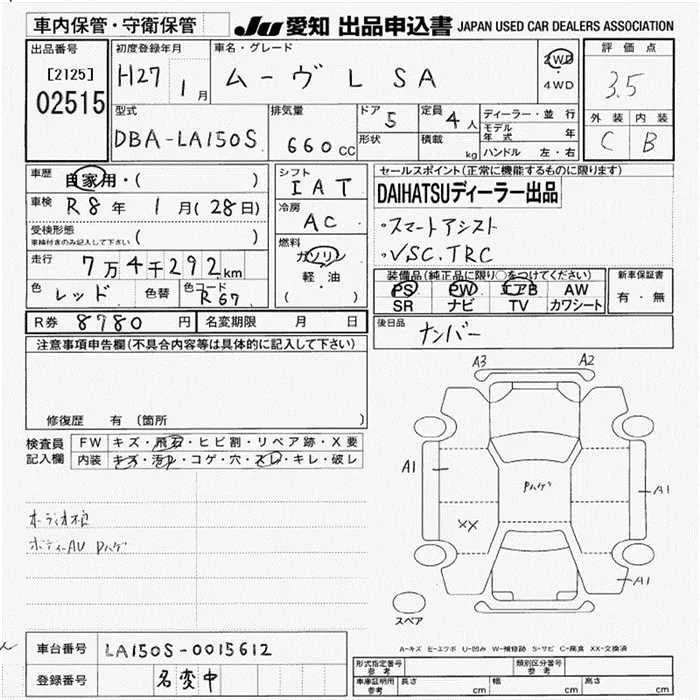 車内保管・守衛保管
JU 愛知 出品申込書 JAPAN USED CAR DEALERS ASSOCIATION
出品番号
[2125]
02515
初度登録年月
H27 1月
車名・グレード
ムーヴ L SA
2WD
・
4WD
評価点
3.5
外装 内装
C B
型式
DBA-LA150S
排気量
660cc
ドア 5
形状
定員 4人
積載 kg
ディーラー・並行
モデル年式 年
ハンドル 左・右
車歴 自家用・( )
車検 R8年 1月(28日)
受検形態
車検付きのみ記入して下さい ( )
走行 7万4千292km
色 レッド 色替 色コード R67
シフト
IAT
冷房
AC
燃料
ガソリン
軽・油
( )
セールスポイント(正常に機能するものに限ります)
DAIHATSUディーラー出品
・スマートアシスト
・VSC.TRC
装備品(純正品に限り○をつけてください)
PS PW エアB AW
SR ナビ TV カワシート
新車保証書
有・無
R券 8780円 名変期限 月 日
後日品 ナンバー
注意事項申告欄(不具合内容等は具体的に記入して下さい)
修復歴 有 (箇所 )
検査員
記入欄
FW キズ・飛石・ヒビ割・リペア跡・X要
内装 キズ・汚れ・コゲ・穴・スレ・キレ・破レ
ボディーAU Pハゲ
A3 A2
A1
Pハゲ
A1
XX
A1
スペア
A-キズ E-エクボ U-凹み W-補修跡 S-サビ C-腐食 XX-交換済
車台番号 LA150S-0015612
登録番号 名変中
形式指定番号
参考
類別区分番号
参考
車庫証明用
参考
長さ cm 幅 cm 高さ cm